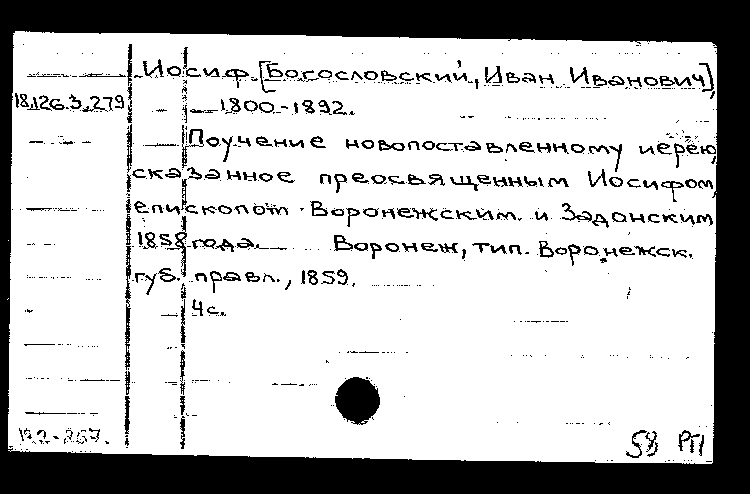 Иосиф [Богословский, Иван Иванович],
18.126.3.279 1800-1892.
Поучение новопоставленному иерею,
сказанное преосвященным Иосифом,
епископом Воронежским и Задонским
1858 года. Воронеж, тип. Воронежск.
губ. правл., 1859.
4с.
122-267. 58 РП